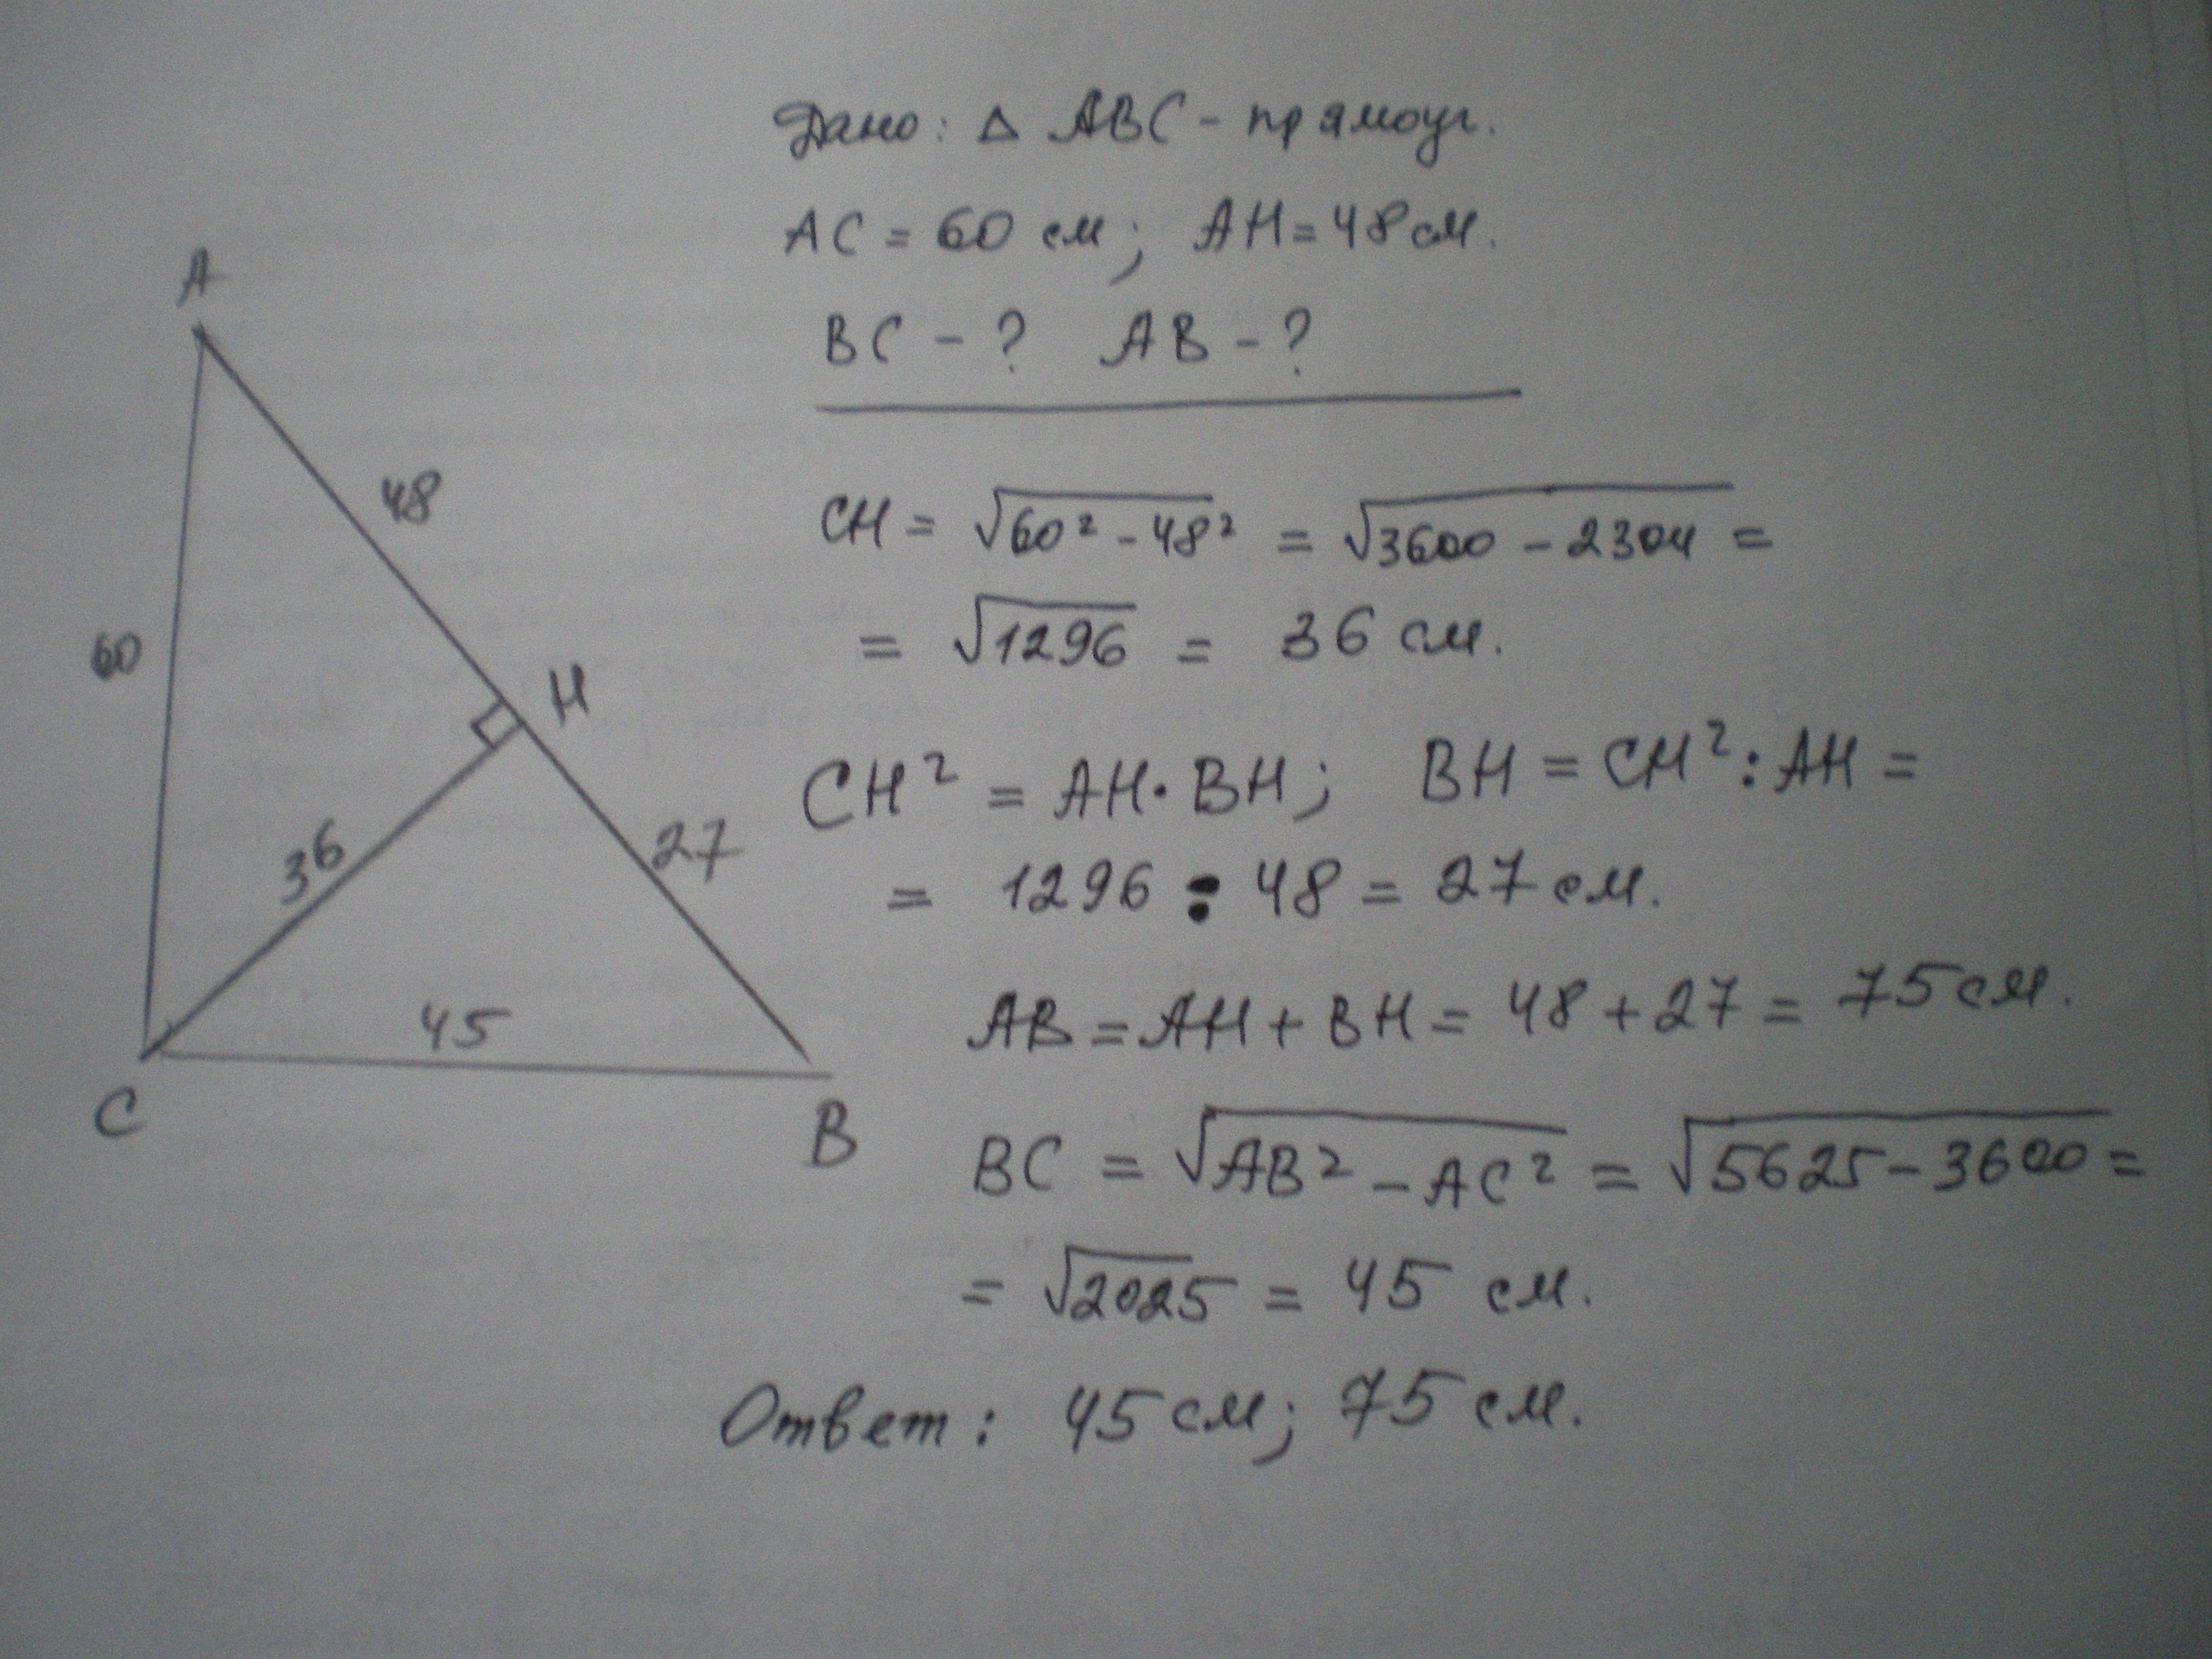 Дано: △ ABC - прямоуг.
AC = 60 см; AH = 48 см.
BC - ? AB - ?
A
48
60
H
36
27
45
C
B
CH = √60² - 48² = √3600 - 2304 =
= √1296 = 36 см.
CH² = AH · BH; BH = CH² : AH =
= 1296 : 48 = 27 см.
AB = AH + BH = 48 + 27 = 75 см.
BC = √AB² - AC² = √5625 - 3600 =
= √2025 = 45 см.
Ответ: 45 см; 75 см.